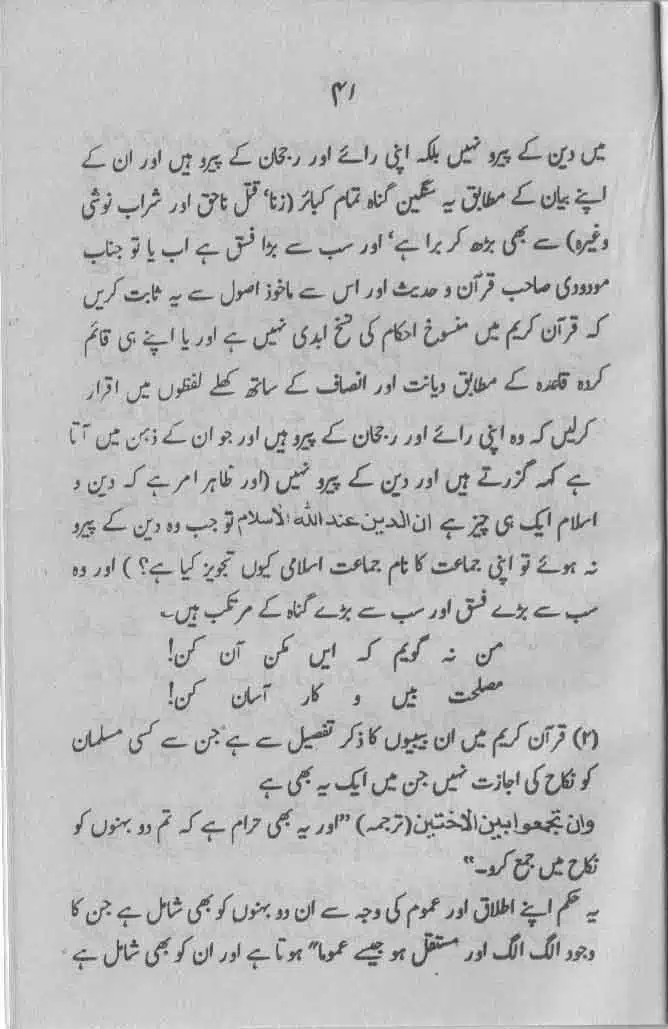 ۴۱
میں دین کے پیرو نہیں بلکہ اپنی رائے اور رجحان کے پیرو ہیں اور ان کے
اپنے بیان کے مطابق یہ سنگین گناہ تمام کبائر (زنا‘ قتل ناحق اور شراب نوشی
وغیرہ) سے بھی بڑھ کر برا ہے‘ اور سب سے بڑا فسق ہے اب یا تو جناب
مودودی صاحب قرآن و حدیث اور اس سے ماخوذ اصول سے یہ ثابت کریں
کہ قرآن کریم میں منسوخ احکام کی نسخ ابدی نہیں ہے اور یا اپنے ہی قائم
کردہ قاعدہ کے مطابق دیانت اور انصاف کے ساتھ کھلے لفظوں میں اقرار
کرلیں کہ وہ اپنی رائے اور رجحان کے پیرو ہیں اور جو ان کے ذہن میں آتا
ہے کہہ گزرتے ہیں اور دین کے پیرو نہیں (اور ظاہر امر ہے کہ دین و
اسلام ایک ہی چیز ہے ان الدین عنداللہ الاسلام تو جب وہ دین کے پیرو
نہ ہوئے تو اپنی جماعت کا نام جماعت اسلامی کیوں تجویز کیا ہے؟ ) اور وہ
سب سے بڑے فسق اور سب سے بڑے گناہ کے مرتکب ہیں۔
من نہ گویم کہ ایں مکن آن کن!
مصلحت بیں و کار آسان کن!
(۲) قرآن کریم میں ان بیبیوں کا ذکر تفصیل سے ہے جن سے کسی مسلمان
کو نکاح کی اجازت نہیں جن میں ایک یہ بھی ہے
وان تجمعوا بین الاختین (ترجمہ) ”اور یہ بھی حرام ہے کہ تم دو بہنوں کو
نکاح میں جمع کرو۔“
یہ حکم اپنے اطلاق اور عموم کی وجہ سے ان دو بہنوں کو بھی شامل ہے جن کا
وجود الگ الگ اور مستقل ہو جیسے عموما“ ہوتا ہے اور ان کو بھی شامل ہے